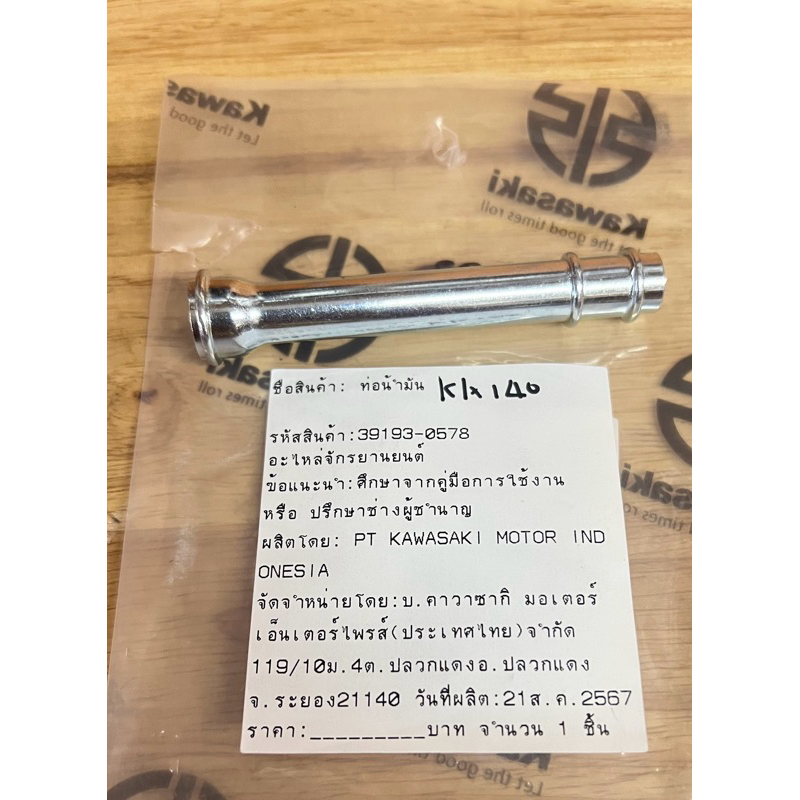 Kawasaki
Let the good
Kawasaki
Let the good times roll
ชื่อสินค้า: ท่อน้ำมัน Klx 140
รหัสสินค้า:39193-0578
อะไหล่จักรยานยนต์
ข้อแนะนำ:ศึกษาจากคู่มือการใช้งาน
หรือ ปรึกษาช่างผู้ชำนาญ
ผลิตโดย: PT KAWASAKI MOTOR IND
ONESIA
จัดจำหน่ายโดย:บ.คาวาซากิ มอเตอร์
เอ็นเตอร์ไพรส์(ประเทศไทย)จำกัด
119/10ม.4ต.ปลวกแดงอ.ปลวกแดง
จ.ระยอง21140 วันที่ผลิต:21ส.ค.2567
ราคา:_________บาท จำนวน 1 ชิ้น